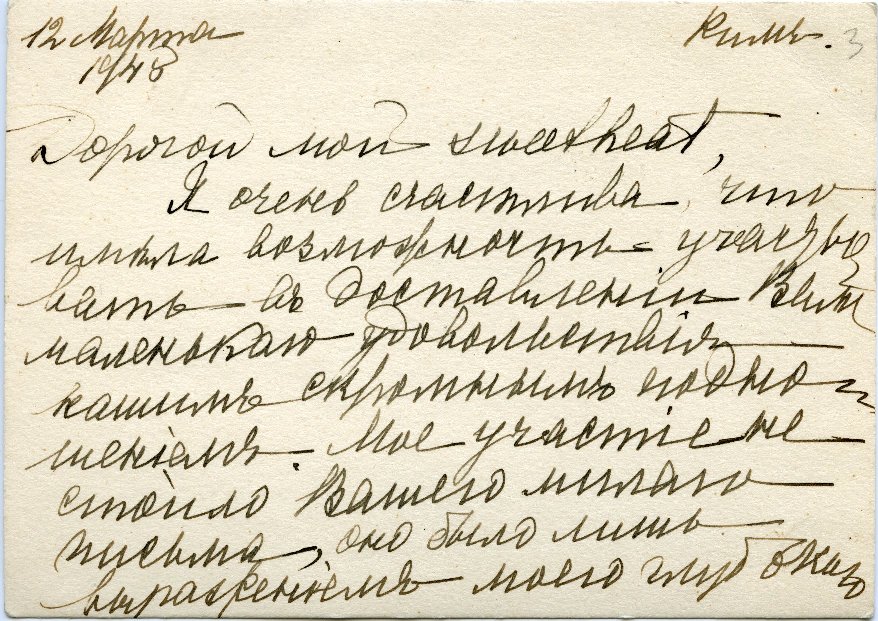 12 Марта
1948
Римъ. 3
Дорогой мой sweetheat,
Я очень счастлива, что
имѣла возможность участво
вать въ доставленіи Вамъ
маленькаго удовольствія
нашимъ скромнымъ подно-
шеніемъ. Мое участіе не
стоило Вашего милаго
письма, оно было лишь
выраженіемъ моего глубокаго